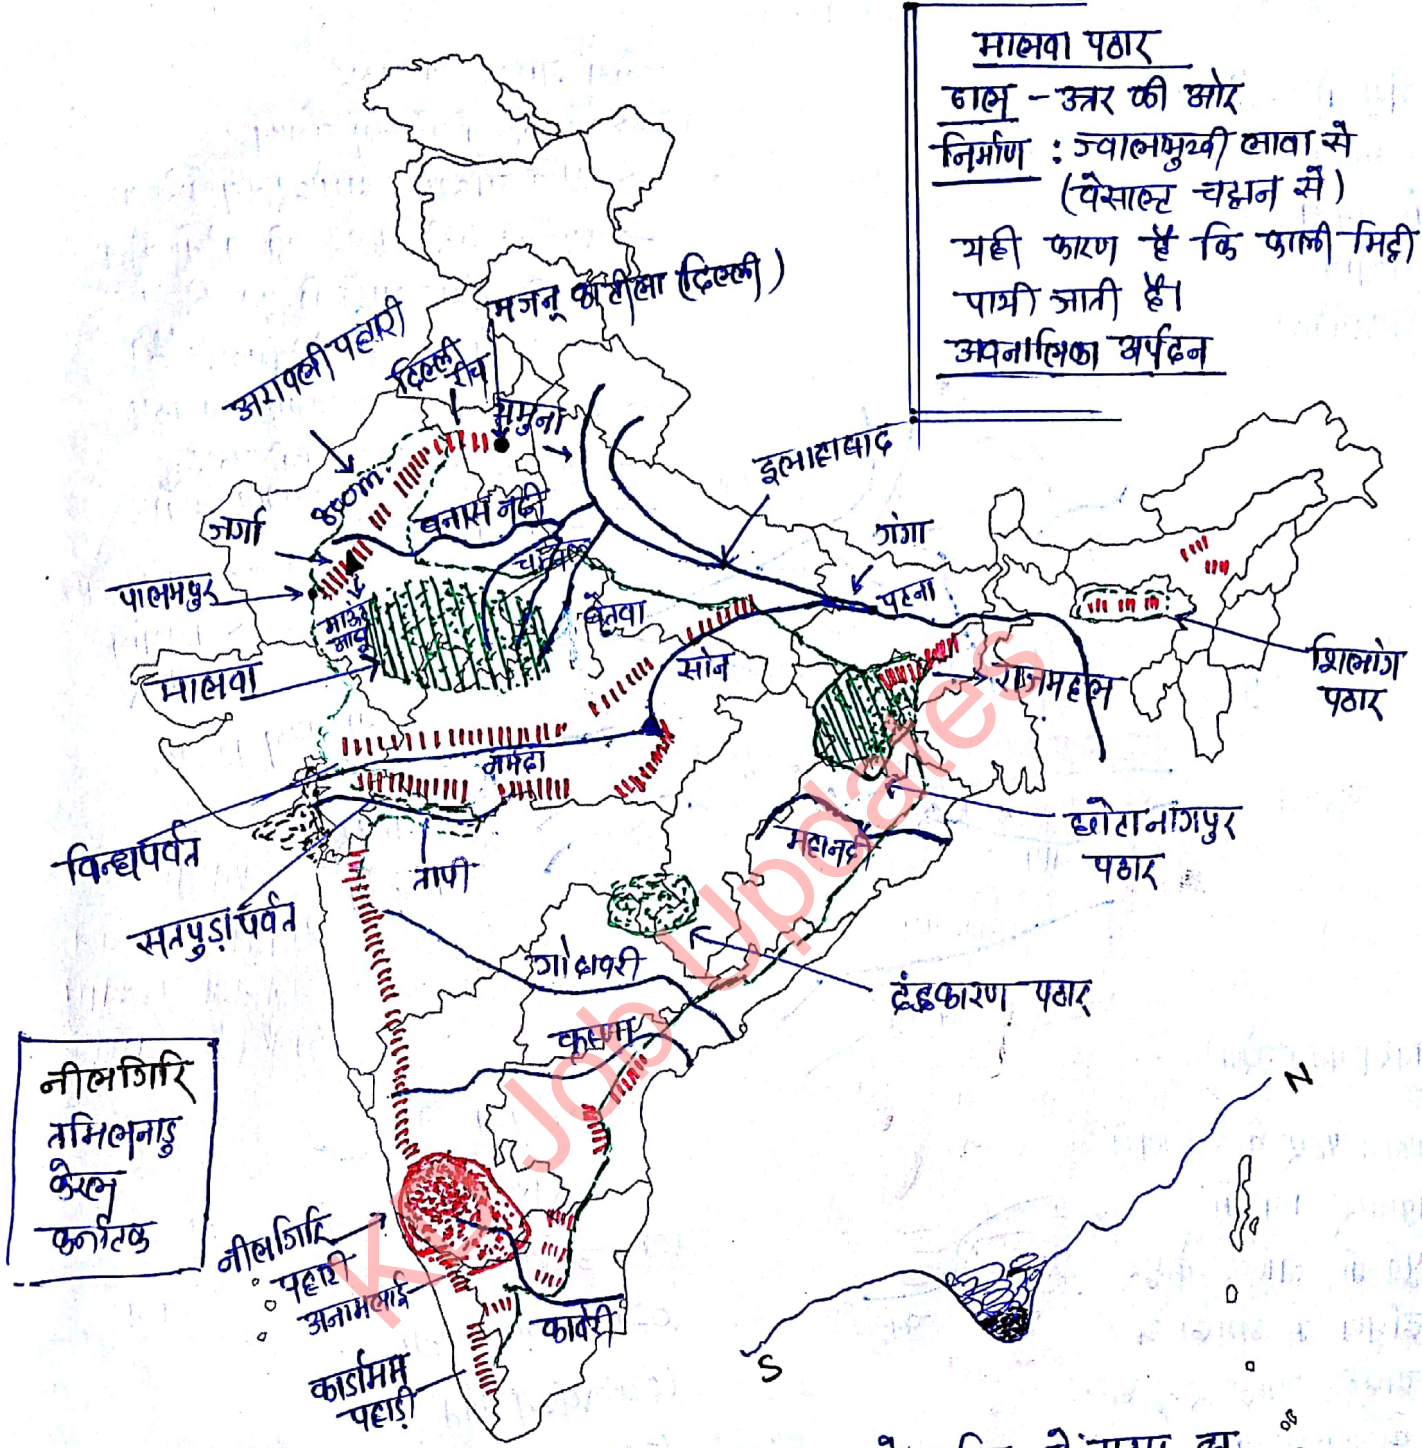 मालवा पठार
ढाल - उत्तर की ओर
निर्माण : ज्वालामुखी लावा से
(बेसाल्ट चट्टान से)
यही कारण है कि काली मिट्टी
पायी जाती है।
अवनालिका अर्पदन
मजनू का टीला (दिल्ली)
अरावली पहारी
दिल्ली
रीच
यमुना
इलाहाबाद
800m.
बनास नदी
जर्गा
चम्बल
गंगा
पालमपुर
माउंट
आबू
बेतवा
पटना
मालवा
सोन
राजमहल
शिलांग
पठार
नर्मदा
छोटानागपुर
पठार
विन्ध्यपर्वत
तापी
महानदी
सतपुड़ा पर्वत
गोदावरी
दंडकारण पठार
कृष्णा
नीलगिरि
तमिलनाडु
केरल
कर्नाटक
N
नीलगिरि
पहारी
अनामलाई
कावेरी
S
कार्डामम
पहाड़ी
KD Job Updates